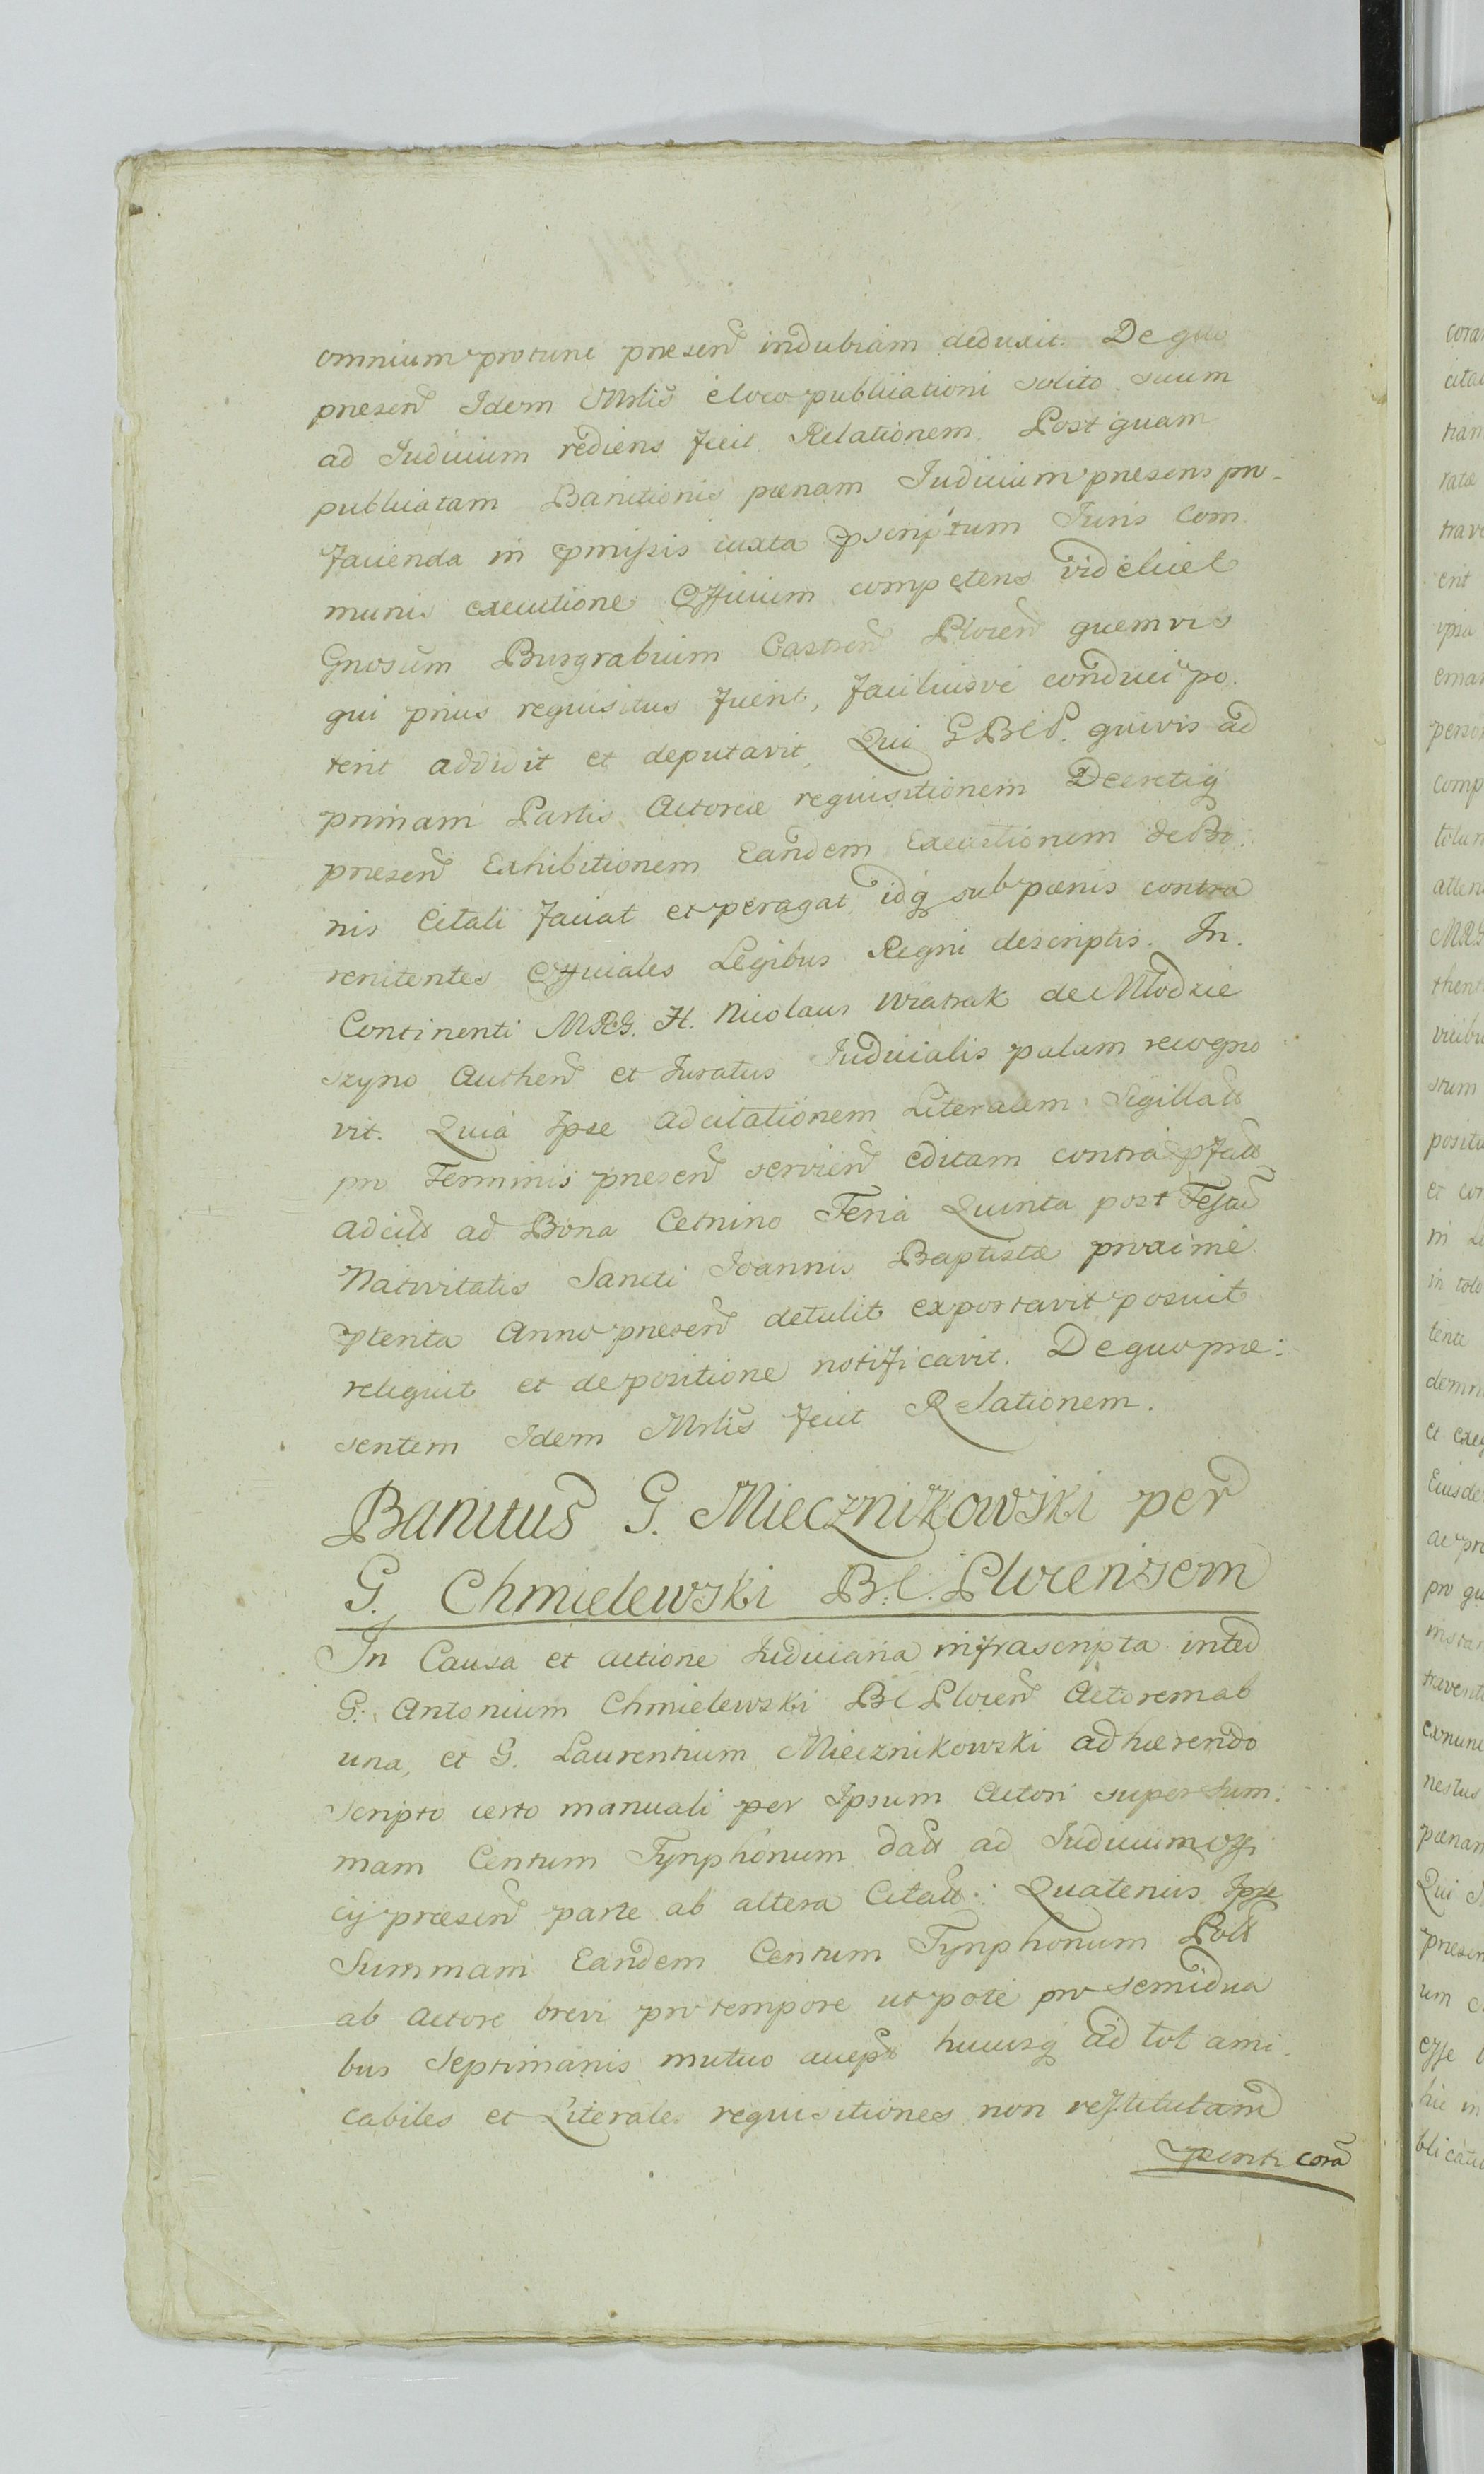 omnium protunc præsen indubiam deduxit. De quo
præsen Idem Mrlis e loco publicationi solito suum
ad Iudicium rediens fecit Relationem. Post quam
publicatam Banitionis pœnam Iudicium præsens pro-
facienda in pmissis iuxta pscriptum Iuris Com
munis executione Officium competens videlicet
Gnosum Burgrabium Castren Plocen quemvis
qui prius requisitus fuerit, faciliusve conduci po.
terit addidit et deputavit, Qui GBCP. quivis ad
primam Partis Actoreæ requisitionem Decretiq
præsen Exhibitionem Eandem Executionem de Bo:
nis Citati faciat et peragat idq sub pœnis contra
renitentes Officiales Legibus Regni descriptis. In.
Continenti MRG. H. Nicolaus Wiatrak de Młodzie
szyno Authen et Iuratus Iudicialis palam recogno
vit. Quia Ipse adcitationem Literalem Sigillatt
pro Terminis præsen servien editam contra pfatt
adcitt ad Bona Cetnino Feria Quinta post Festu
Nativitatis Sancti Joannis Baptistæ proxime
pterita Anno præsen detulit exportavit posuit
reliquit et de positione notificavit. De quo præ:
sentem Idem Mrlis fecit Relationem.
Banitus G. Miecznikowski per
G. Chmielewski B.C. Plocensem
In Causa et actione Iudiciaria infrascripta inter
G. Antonium Chmielewski BC Plocen Actorem ab
una, et G. Laurentium Miecznikowski adhærendo
Scripto certo manuali per Ipsum Actori super Sum:
mam Centum Tynphonum datt ad Iudicium Offi
cij præsen parte ab altera Citatt: Quatenus Ipse
Summam Eandem Centum Tynphonum Poll
ab Actore brevi pro tempore utpote pro Semidua
bus Septimanis mutuo accept hucusq ad tot ami.
cabiles et Literales requisitiones non restitutam
corã